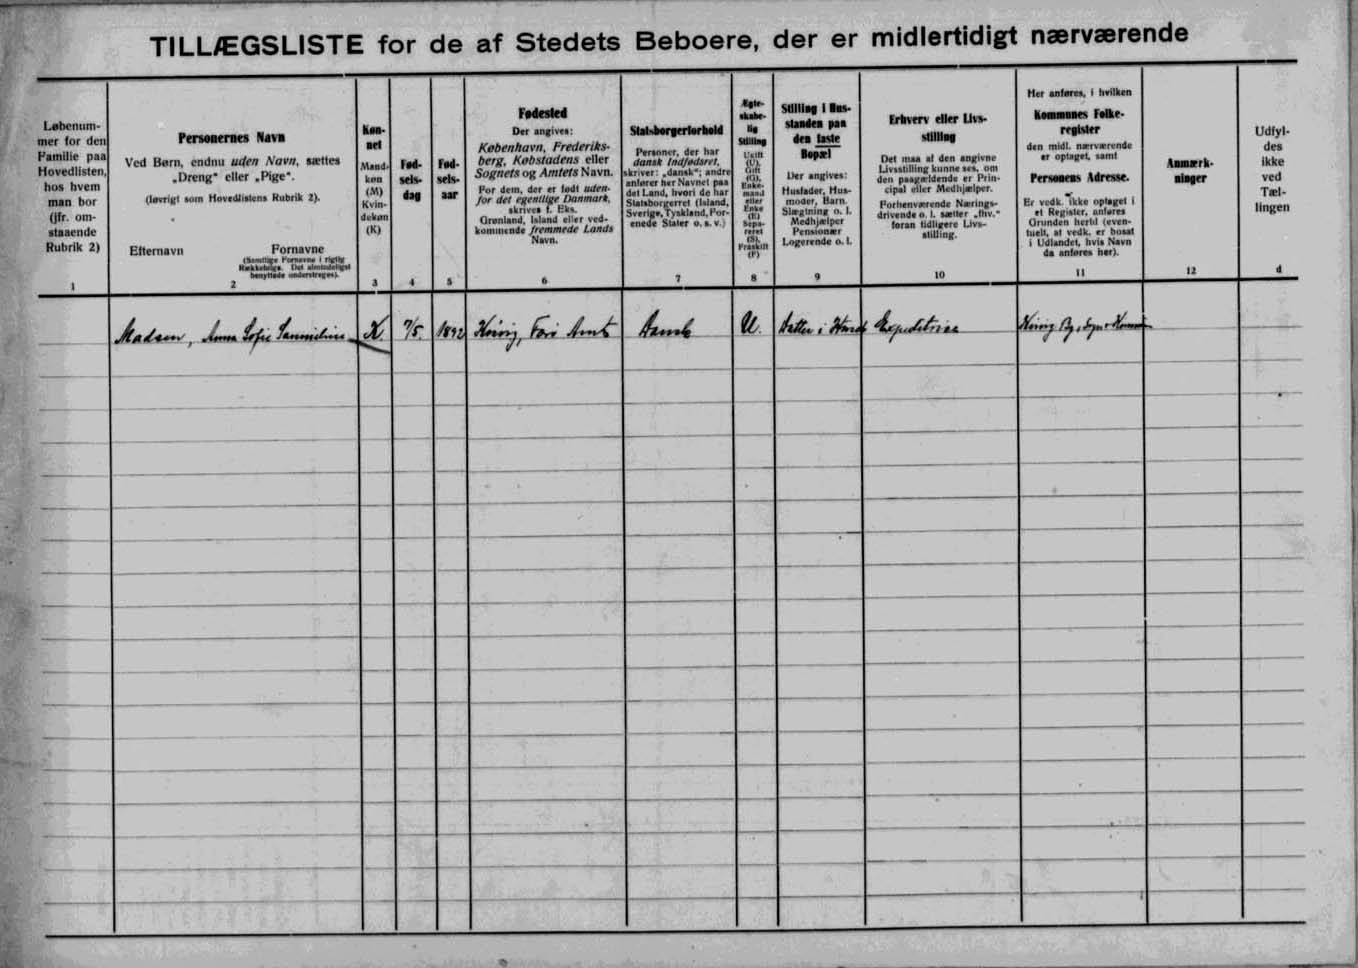 TILLÆGSLISTE for de af Stedets Beboere, der er midlertidigt nærværende
Løbenum-
mer for den
Familie paa
Hovedlisten,
hos hvem
man bor
(jfr. om-
staaende
Rubrik 2)
1
Personernes Navn
Ved Børn, endnu uden Navn, sættes
„Dreng“ eller „Pige“.
(Iøvrigt som Hovedlistens Rubrik 2).
Efternavn
Fornavne
(Samtlige Fornavne i rigtig
Rækkefølge. Det almindeligst
benyttede understreges).
2
Køn-
net
Mand-
køn
(M)
Kvin-
dekøn
(K)
3
Fød-
sels-
dag
4
Fød-
sels-
aar
5
Fødested
Der angives:
København, Frederiks-
berg, Købstadens eller
Sognets og Amtets Navn.
For dem, der er født uden-
for det egentlige Danmark,
skrives f. Eks.
Grønland, Island eller ved-
kommende fremmede Lands
Navn.
6
Statsborgerforhold
Personer, der har
dansk Indfødsret,
skriver: „dansk“; andre
anfører her Navnet paa
det Land, hvori de har
Statsborgerret (Island,
Sverige, Tyskland, For-
enede Stater o. s. v.)
7
Ægte-
skabe-
lig
Stilling
Ugift
(U),
Gift
(G),
Enke-
mand
eller
Enke
(E)
Sepa-
reret
(S),
Fraskilt
(F)
8
Stilling i Hus-
standen paa
den faste
Bopæl
Der angives:
Husfader, Hus-
moder, Barn,
Slægtning o. l.
Medhjælper
Pensionær
Logerende o. l.
9
Erhverv eller Livs-
stilling
Det maa af den angivne
Livsstilling kunne ses, om
den paagældende er Prin-
cipal eller Medhjælper.
Forhenværende Nærings-
drivende o. l. sætter „fhv.“
foran tidligere Livs-
stilling.
10
Her anføres, i hvilken
Kommunes Folke-
register
den midl. nærværende
er optaget, samt
Personens Adresse.
Er vedk. ikke optaget i
et Register, anføres
Grunden hertil (even-
tuelt, at vedk. er bosat
i Udlandet, hvis Navn
da anføres her).
11
Anmærk-
ninger
12
Udfyl-
des
ikke
ved
Tæl-
lingen
d
Madsen, Anna Sofie K. 7/5. 1892 Amt Dansk U. Datter i Expeditrice